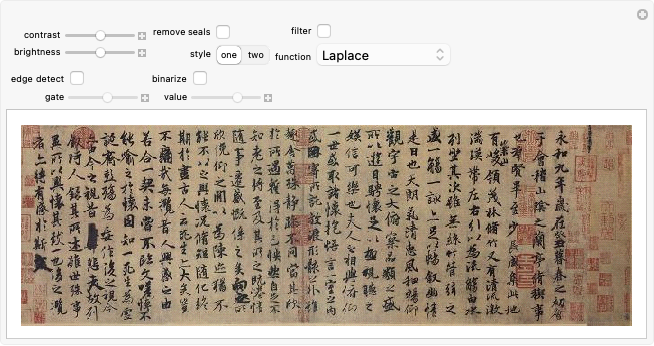 contrast
brightness
remove seals
filter
style one two
function Laplace
edge detect
binarize
gate
value
永和九年歲在癸丑暮春之初會
于會稽山陰之蘭亭脩稧事
也群賢畢至少長咸集此地
有崇山峻領茂林脩竹又有清流激
湍暎帶左右引以為流觴曲水
列坐其次雖無絲竹管弦之
盛一觴一詠亦足以暢敘幽情
是日也天朗氣清惠風和暢仰
觀宇宙之大俯察品類之盛
所以遊目騁懷足以極視聽之
娛信可樂也夫人之相與俯仰
一世或取諸懷抱悟言一室之內
或因寄所託放浪形骸之外雖
趣舍萬殊靜躁不同當其欣
於所遇蹔得於己怏然自足不
知老之將至及其所之既惓情
隨事遷感慨係之矣向之所
欣俛仰之閒以為陳迹猶不
能不以之興懷況脩短隨化終
期於盡古人云死生亦大矣豈
不痛哉每攬昔人興感之由
若合一契未嘗不臨文嗟悼不
能喻之於懷固知一死生為虛
誕齊彭殤為妄作後之視今
亦由今之視昔悲夫故列
敘時人錄其所述雖世殊事
異所以興懷其致一也後之攬
者亦將有感於斯